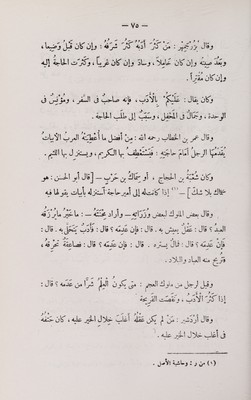 — ٧٥ —
وقال بُزُرْجِمِهْر : مَنْ كَثُرَ أَدَبُهُ كَثُرَ شَرَفُهُ : وإن كان قَبْلُ وَضِيعا ،
وبَعُدَ صِيتُه وإن كان خامِلاً ، وساد وإن كان غريباً ، وكثُرت الحاجةُ إليه
وإن كان مُقْتِراً .
وكان يقال : عَلَيْكُمْ بالأدب ، فإنه صاحبٌ فى السَّفر ، ومؤنِسٌ فى
الوحدة ، وجمالٌ فى المَحْفِل ، وسَبَبٌ إلى طلَب الحاجة .
وقال عمر بن الخطاب رحمه الله : مِنْ أفضل ما أُعْطِيَتْهُ العربُ الأبياتُ
يُقدِّمُها الرجلُ أمامَ حاجتِهِ : فيَسْتَعْطِفُ بها الكريم ، ويستنزل بها اللئيم .
وكان شُعْبَةُ بن الحجاج ، أو سِمَاكُ بن حَرْبٍ — [ قال أبو الحسن : هو
سِماك بلا شك ] — (١) إذا كانت له إلى أمير حاجة استنزله بأبيات يقولها فيه
وقال بعض الملوك لبعض وُزَرائِهِ — وأراد مِحْنَتَهُ — : ما خَيْرُ ما يُرْزَقُه
العبدُ ؟ قال : عَقْلٌ يعيش به . قال : فإن عَدِمَهُ ؟ قال : فأدَبٌ يَتَحَلَّى به . قال :
فإن عَدِمَهُ ؟ قال : فمالٌ يستره . قال : فإن عَدِمَهُ ؟ قال : فصاعِقَةٌ تحرقُهُ ،
فتُريح منه العبادَ والبلاد .
وقيل لرجل من ملوك العجم : متى يكونُ العِلْمُ شَرًّا من عَدَمه ؟ قال :
إذا كَثُرَ الأدَبُ ، ونَقَصت القَريحَةُ
وقال أزدشير : مَنْ لم يكن عَقْلُهُ أغلبَ خِلالِ الخيرِ عليه ، كان حَتْفُه
فى أغلب خلال الخير عليه .
(١) من ر ، وحاشية الأصل .